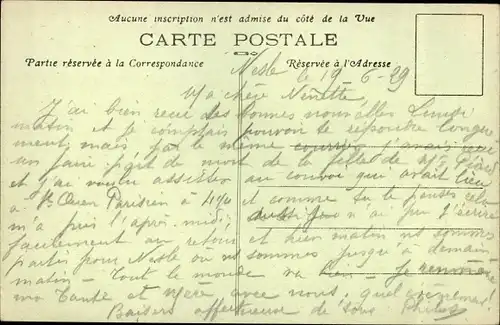 Aucune inscription n'est admise du côté de la Vue
CARTE POSTALE
Partie réservée à la Correspondance
Réservée à l'Adresse
Nesle le 19-6-29
Ma chère Nénette
J'ai bien reçu des bonnes nouvelles Lundi
matin et je comptais pouvoir te répondre longue
ment, mais par le même courrier j'avais reçu
un faire part de mort de la fille de Mr
et j'ai voulu assister au convoi qui avait lieu
à St Ouen Parisien à et comme tu le penses cela
m'a pris l'après-midi n'ai pu t'écrire
facilement au retour et hier matin ns sommes
partis pour Nesle où ns sommes jusqu'à demain
matin - Tout le monde va bien - Je
ma Tante et Mère avec nous,
Baisers affectueux de tous